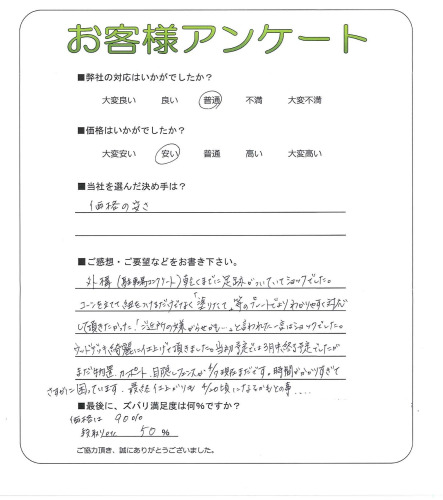 お客様アンケート
■弊社の対応はいかがでしたか？
大変良い 良い 普通 不満 大変不満
■価格はいかがでしたか？
大変安い 安い 普通 高い 大変高い
■当社を選んだ決め手は？
価格の安さ
■ご感想・ご要望などをお書き下さい。
外構（駐車場コンクリート）乾くまでに足跡がついていてショックでした。
コーンを立てて紐をつけるだけではなく「塗りたて」等のプレートでよりわかりやすく対応
して頂きたかった！「ご近所の嫌がらせかも…」と言われた一言はショックでした。
ウッドデッキ綺麗に仕上げて頂きました。当初予定では3月中終了予定でしたが
まだ物置、カーポート、目隠しフェンスが4/7現在まだです。時間がかかりすぎて
さすがに困っています。最終仕上がりも4/20頃になるかもとの事....
■最後に、ズバリ満足度は何％ですか？
価格は 90%
50 %
ご協力頂き、誠にありがとうございました。